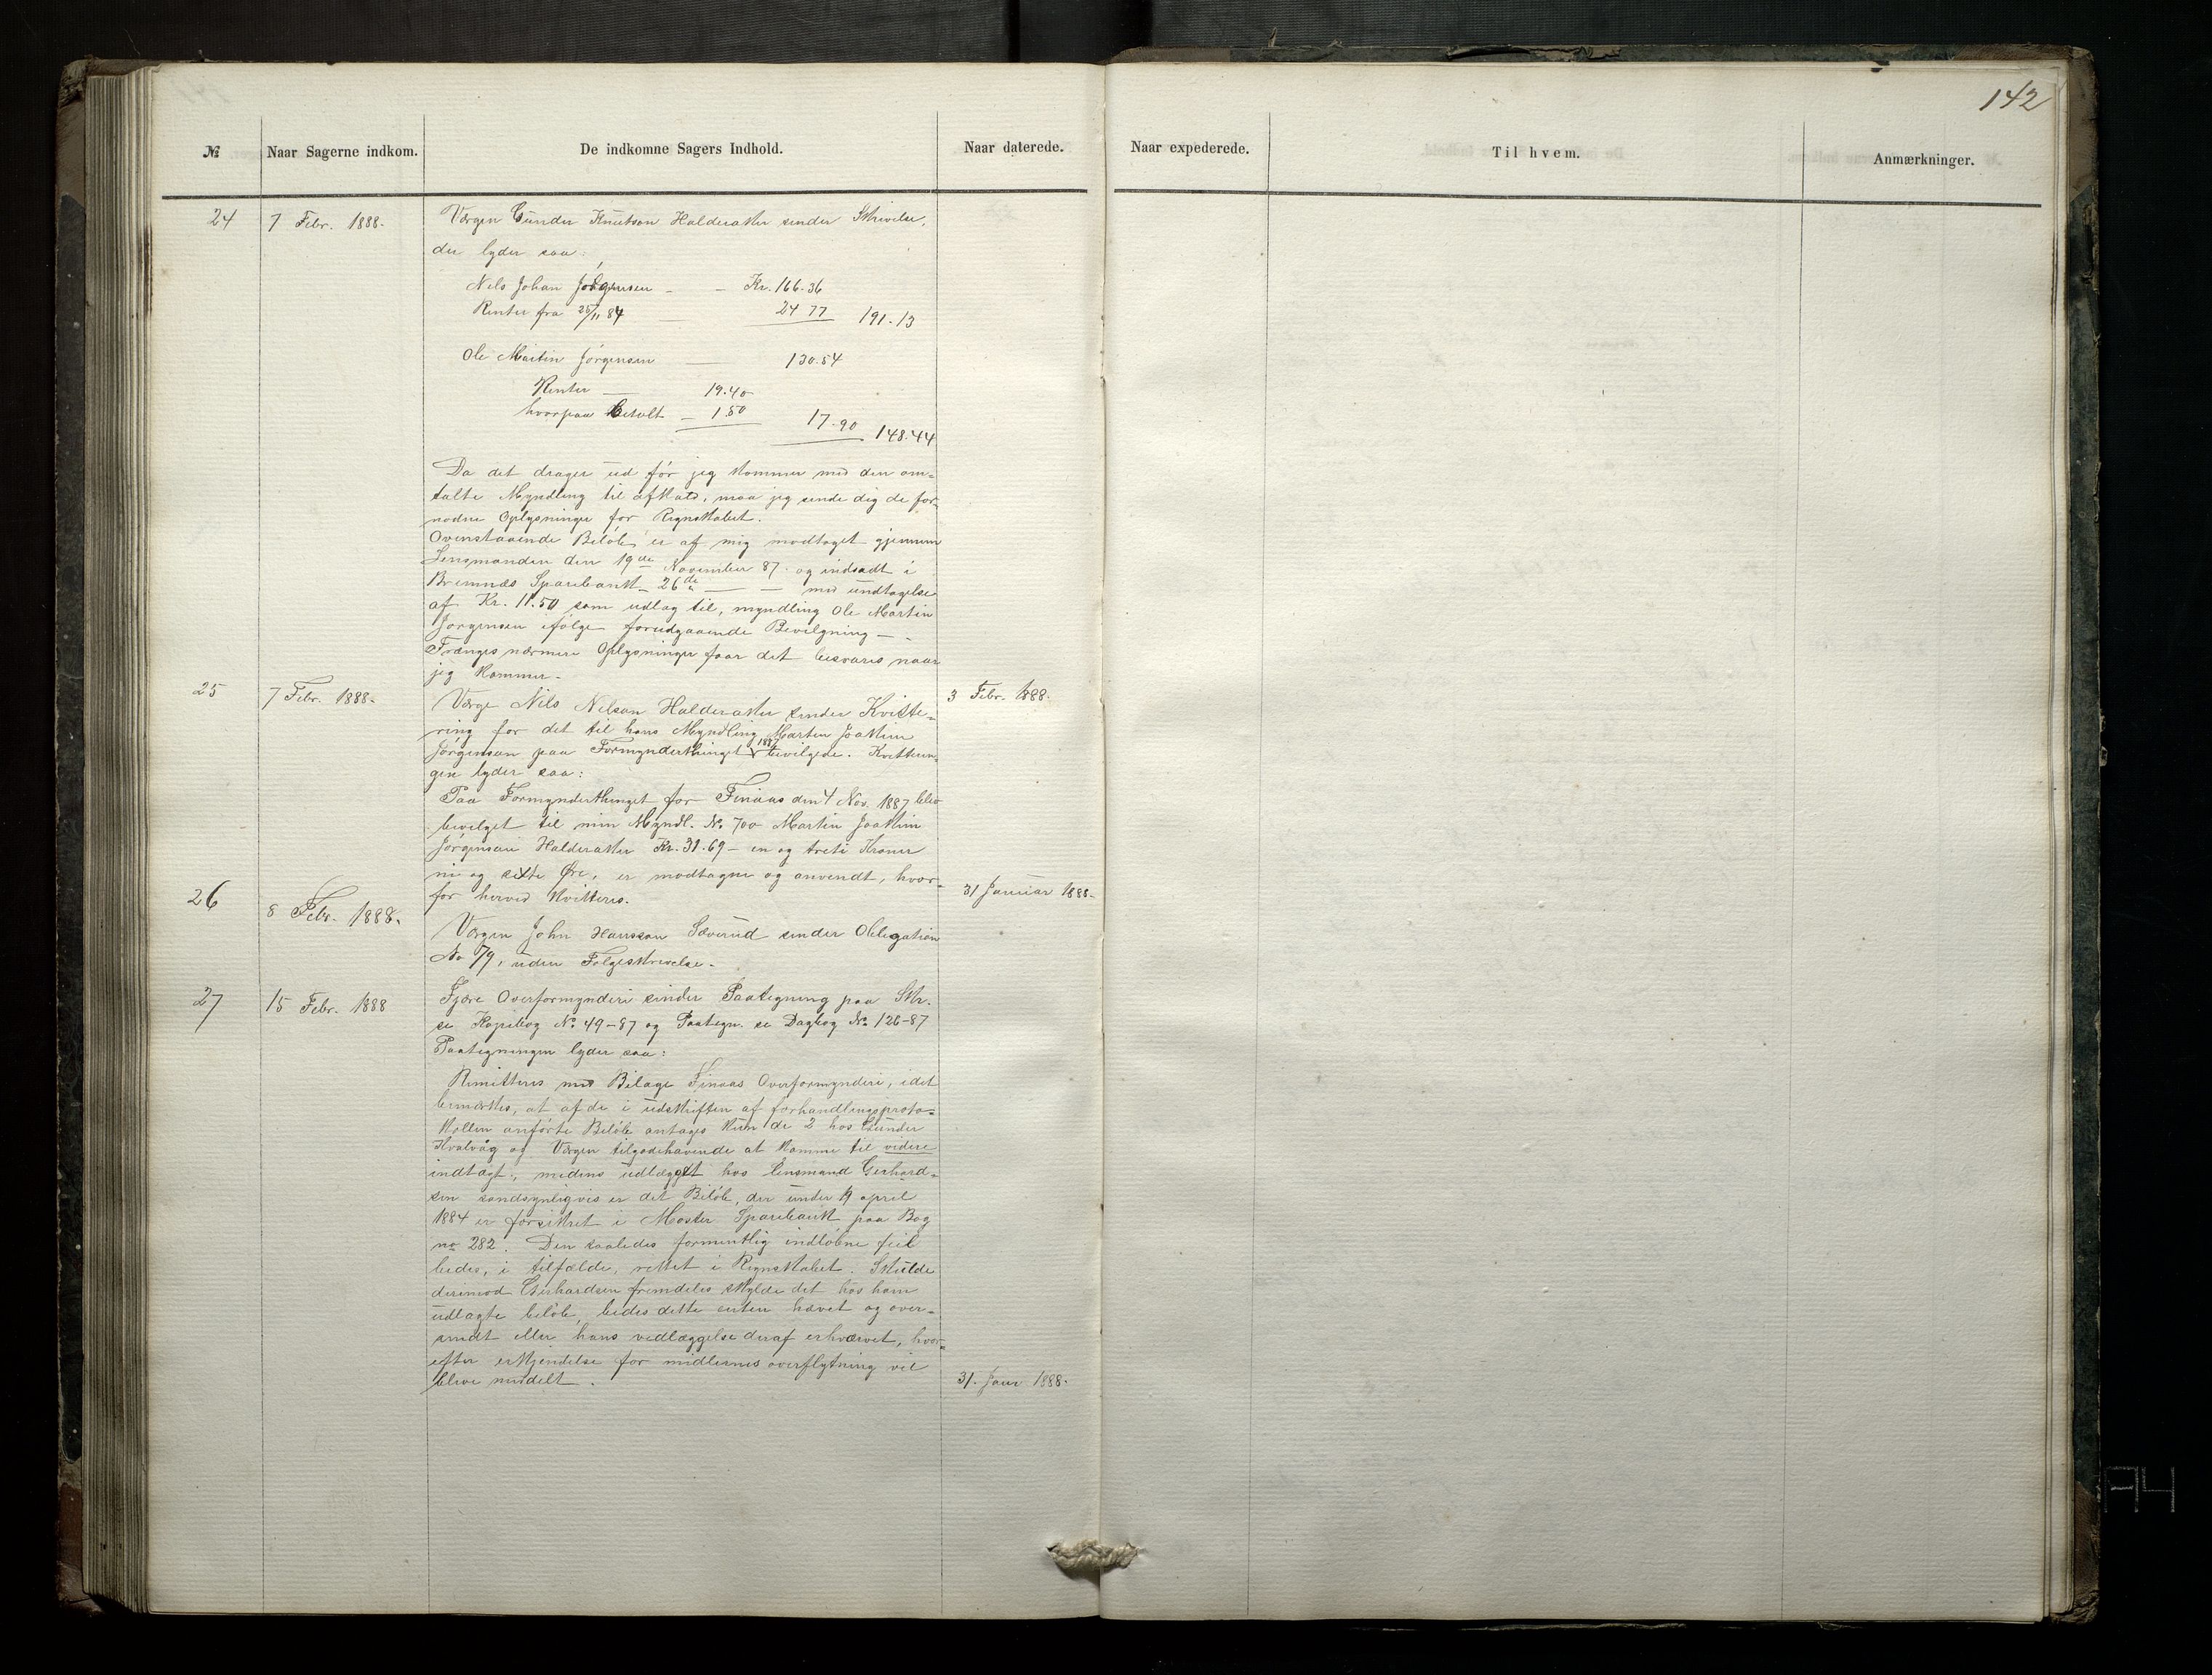 142
№ Naar Sagerne indkom. De indkomne Sagers Indhold. Naar daterede. Naar expederede. Til hvem. Anmærkninger.
24 7 Febr. 1888. Værgen Gunder Knutson Halderaker sender Skrivelse,
der lyder saa:
Nils Johan Jørgensen – – Kr. 166.36
Renter fra 25/11 84 — 24 77 191.13
Ole Martin Jørgensen — 130.54
Renter — 19.40
hvorpaa betalt – 1.50 17.90 148.44
Da det drager ud før jeg kommer med den om=
talte Myndling til afkald, maa jeg sende dig de for-
nødne Oplysninger for Regnskabet.
Ovenstaaende Beløb er af mig modtaget gjennem
Lensmanden den 19de November 87. og indsadt i
Bremnæs Sparebank – 26de — — med undtagelse
af Kr. 11.50 som udlag til, myndling Ole Martin
Jørgensen ifølge forudgaaende Bevilgning — -
Trænges nærmere Oplysninger faar det besvares naar
jeg kommer.
25 7 Febr. 1888. Værge Nils Nilsen Halderaker sender Kvitte= 3 Febr. 1888.
ring for det til hans Myndling Martin Joakim
Jørgensen paa Formynderthinget 1887 bevilgede. Kvitterin=
gen lyder saa:
Paa Formynderthinget for Finaas den 4 Nov. 1887 blev
bevilget til min Myndl. No 700 Martin Joakim
Jørgensen Halderaker Kr. 31.69 – en og treti Kroner
ni og sexti Øre, er modtagne og anvendt, hvor=
for herved kvitteres.
26 8 Febr. 1888. 31 Januar 1888.
Værgen John Hansson Sæverud sender Obligation
No 79, uden Følgeskrivelse.
27 15 Febr. 1888 Fjære Overformynderi sender Paategning paa Skr.
se Kopibog No 49-87 og Paategn. se Dagbog No 126-87
Paategningen lyder saa:
Remitteres med Bilage Finaas Overformynderi, idet
bemærkes, at af de i udskriften af forhandlingsproto=
kollen anførte Beløb antages kun de 2 hos Gunder
Kvalvåg og Værgen tilgodehavende at komme til videre
indtægt, medens udlægget hos lensmand Gerhard=
sen sandsynligvis er det Beløb, der under 19 april
1884 er forsikret i Moster Sparebank paa Bog
no 282. Den saaledes formentlig indløbne feil
bedes, i tilfælde, rettet i Regnskabet. Skulde
derimod Gerhardsen fremdeles skylde det hos ham
udlagte beløb, bedes dette enten hævet og over=
sendt eller hans vedlæggelse deraf erhvervet, hvor=
efter erkjendelse for midlernes overflytning vil
blive meddelt. 31. Janr 1888.